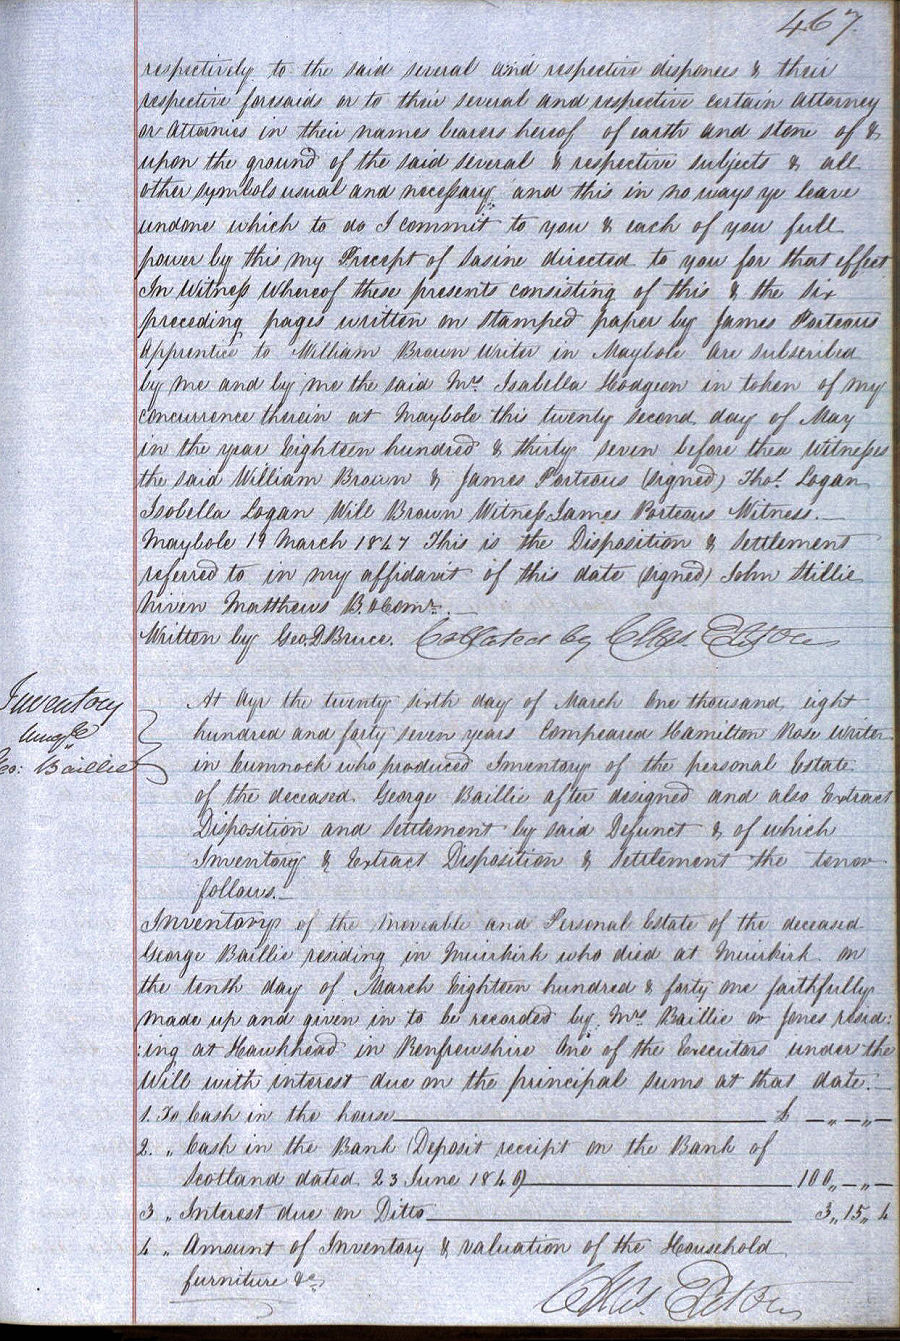 467
respectively to the said several and respective disponees & their
respective foresaids or to their several and respective certain Attorney
or Attornies in their names bearers hereof of earth and stone of &
upon the ground of the said several & respective subjects & all
other symbols usual and necessary and this in no ways ye leave
undone which to do I commit to you & each of you full
power by this my Precept of Sasine directed to you for that effect
In Witness Whereof these presents consisting of this & the six
preceding pages written on stamped paper by James Porteous
Apprentice to William Brown Writer in Maybole are subscribed
by me and by me the said Mrs Isabella Hodgson in token of my
concurrence therein at Maybole this twenty second day of May
in the year Eighteen hundred & thirty seven before these Witnesses
the said William Brown & James Porteous (signed) Thos. Logan
Isobella Logan Will Brown Witness James Porteous Witness.
Maybole 19 March 1847 This is the Disposition & Settlement
referred to in my affidavit of this date (signed) John Stillie
Niven Matthews B. & Comr.
Written by Geo. D Bruce. Collated by Chas.
Inventory
Geo: Baillie
At Ayr the twenty sixth day of March One thousand eight
hundred and forty seven years Compeared Hamilton Rose Writer
in Cumnock who produced Inventory of the personal Estate
of the deceased George Baillie after designed and also Extract
Disposition and Settlement by said Defunct & of which
Inventory & Extract Disposition & Settlement the tenor
follows.
Inventory of the Moveable and Personal Estate of the deceased
George Baillie residing in Muirkirk who died at Muirkirk on
the tenth day of March Eighteen hundred & forty one faithfully
made up and given in to be recorded by Mrs Baillie or Jones resid:
:ing at Hawkhead in Renfrewshire One of the Executors under the
Will with interest due on the principal sums at that date.
1. To Cash in the house £ — „ — „ —
2. „ Cash in the Bank (Deposit receipt on the Bank of
Scotland dated 23 June 1840) 100 „ — „ —
3 „ Interest due on Ditto 3 „ 15 „ 4
4 „ Amount of Inventory & valuation of the Household
furniture &c
Chas.